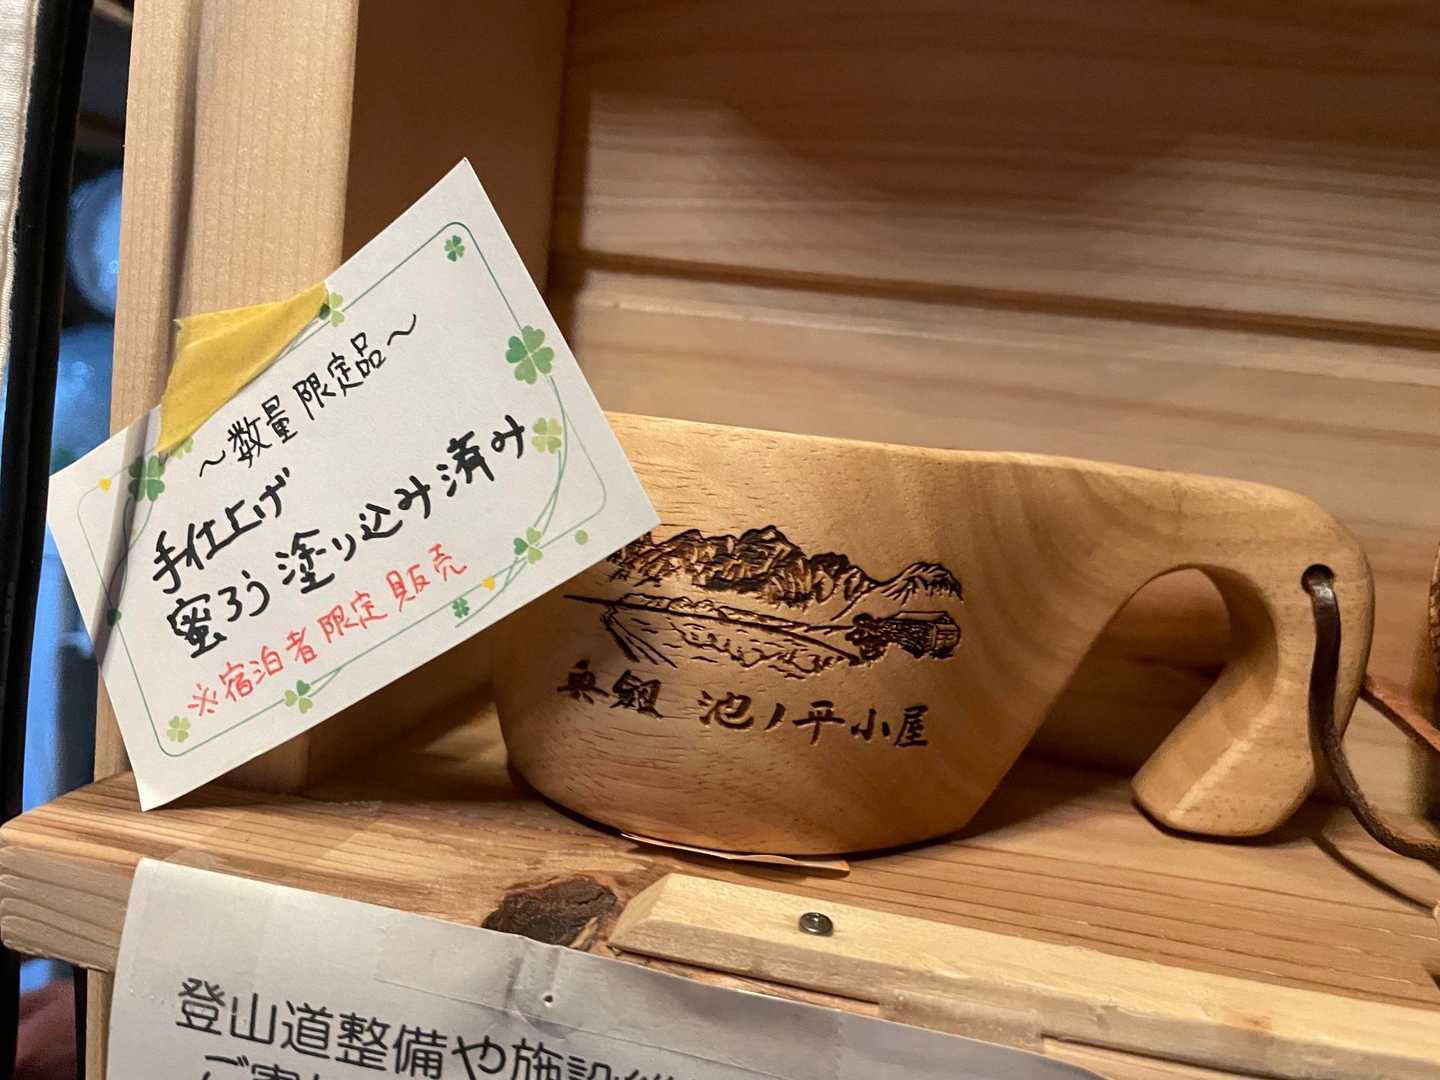 ～数量限定品～
手仕上げ
蜜ろう塗り込み済み
※宿泊者限定販売
奥劔 池ノ平小屋
登山道整備や施設